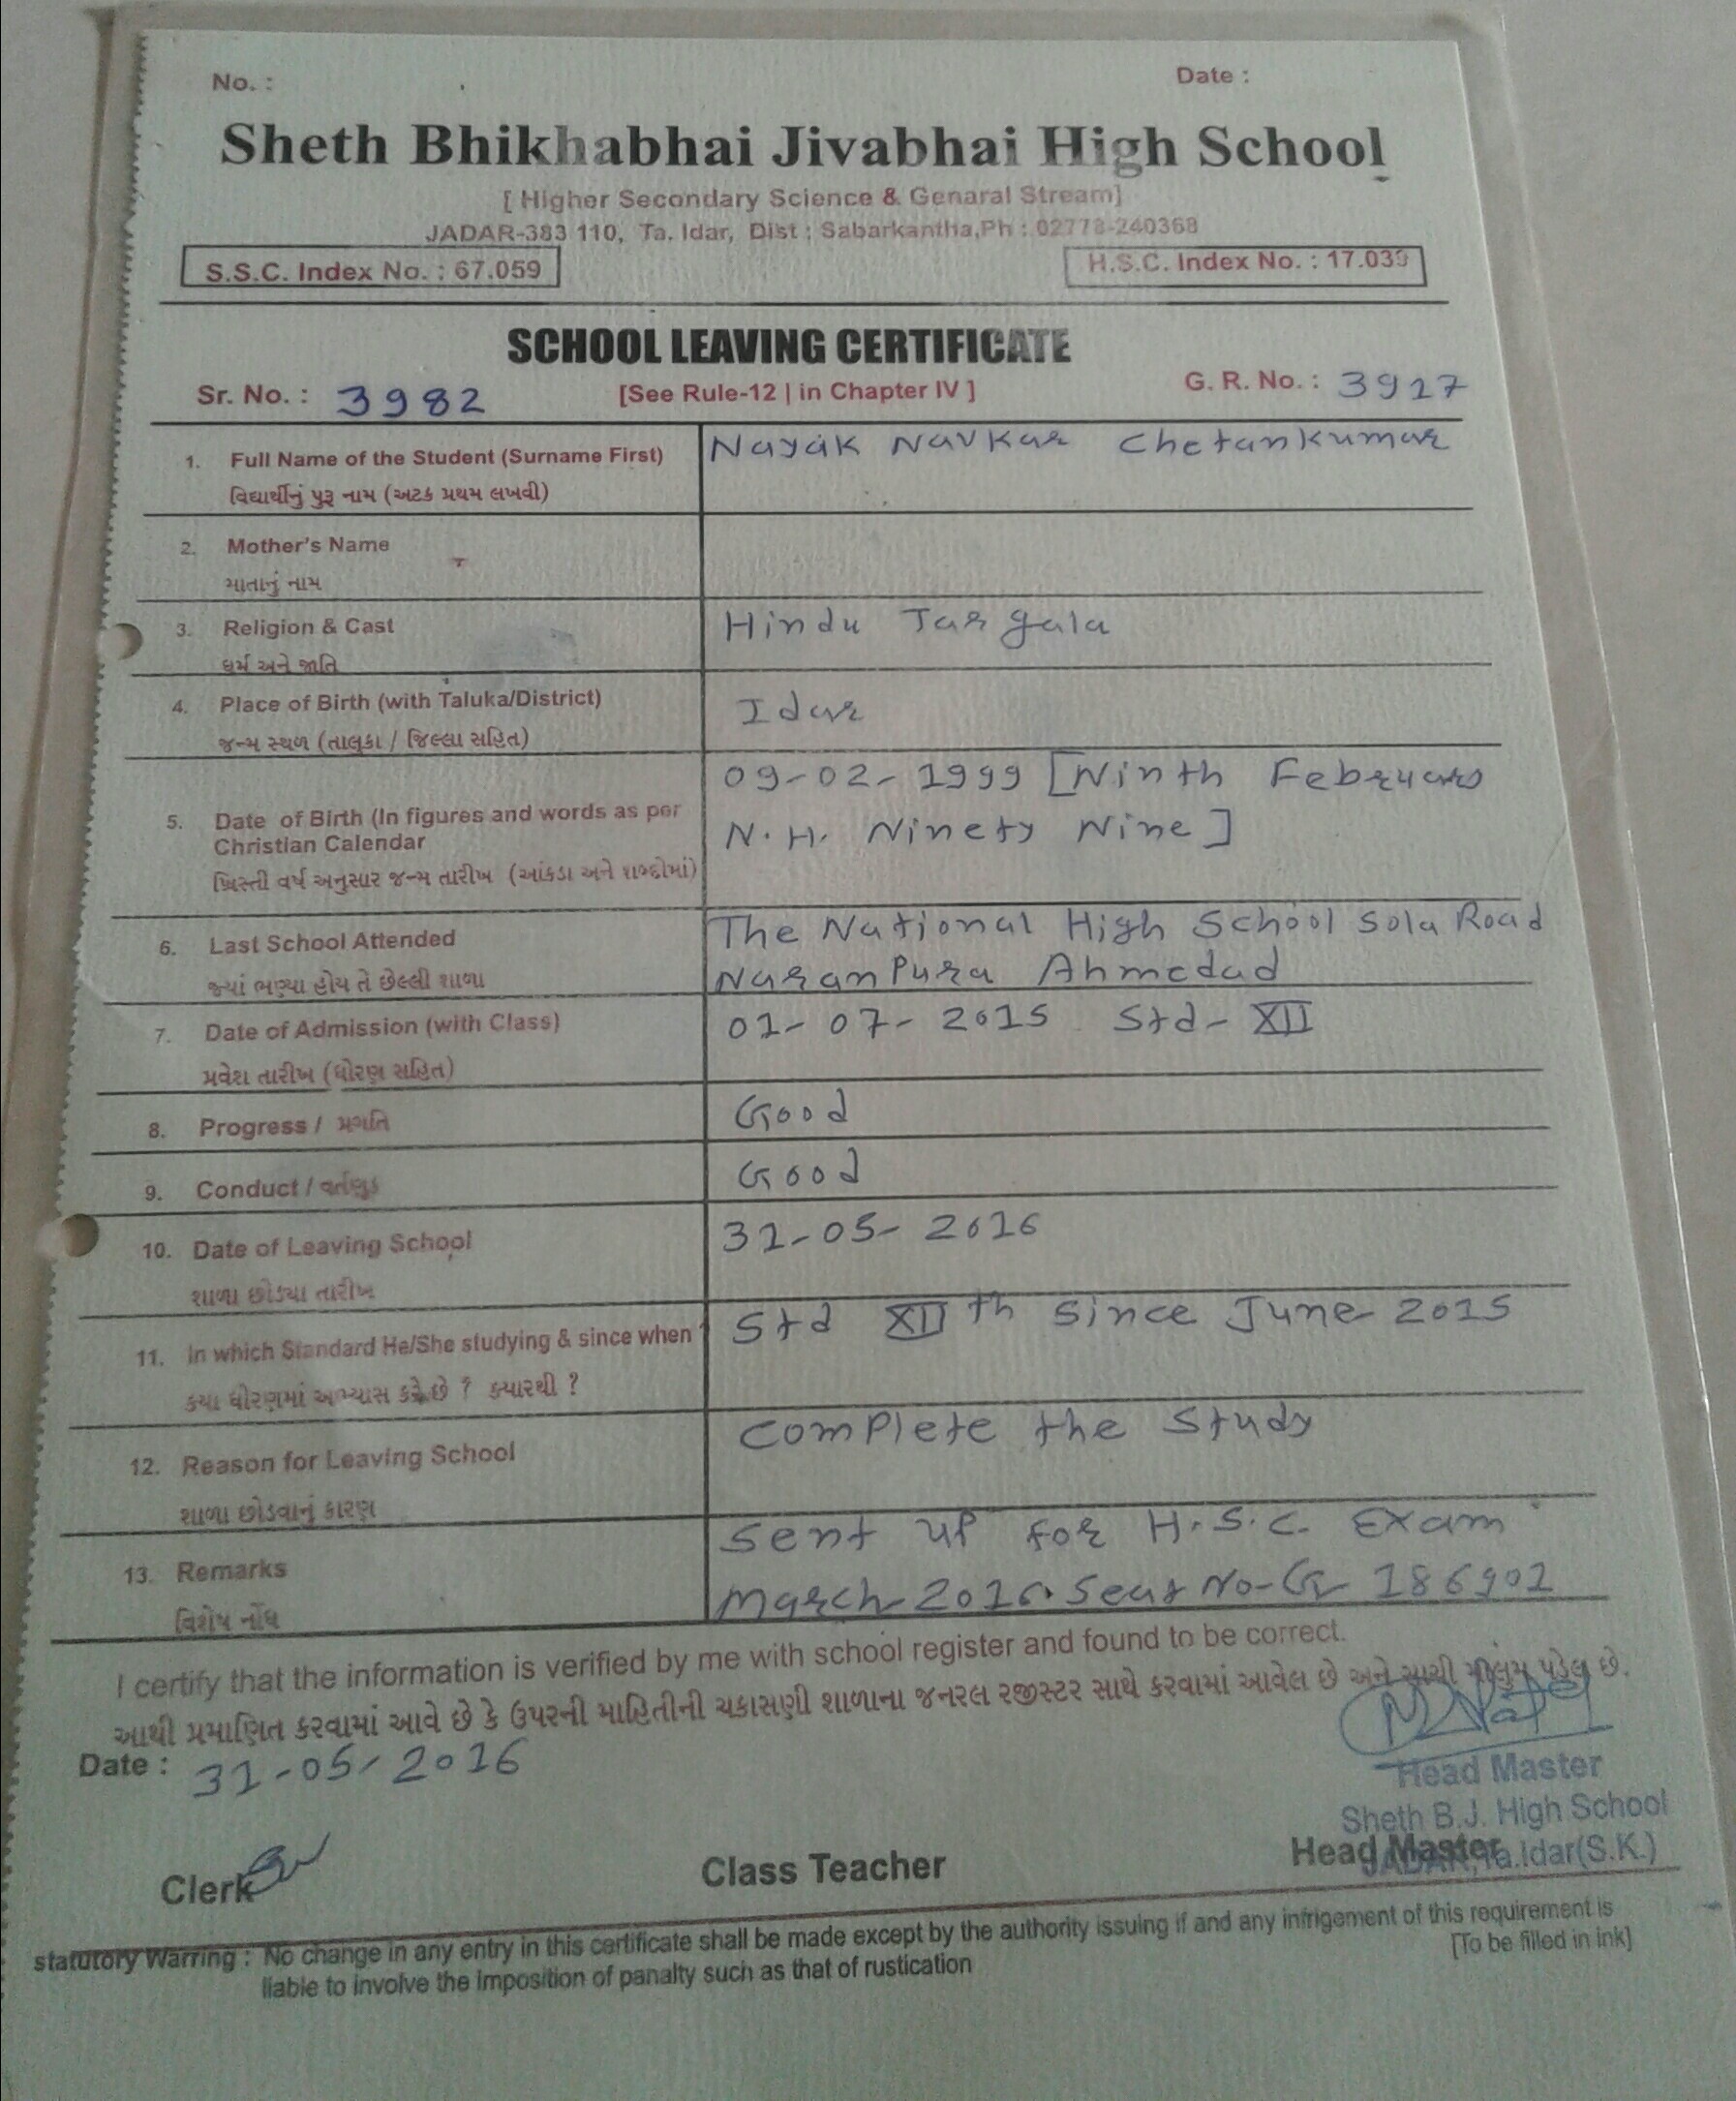 No. :
Date :
Sheth Bhikhabhai Jivabhai High School
[ Higher Secondary Science & Genaral Stream]
JADAR-383 110, Ta. Idar, Dist : Sabarkantha,Ph : 02778-240368
S.S.C. Index No. : 67.059
H.S.C. Index No. : 17.039
SCHOOL LEAVING CERTIFICATE
Sr. No. : 3982 [See Rule-12 | in Chapter IV ] G. R. No. : 3927
1. Full Name of the Student (Surname First) Nayak Navkar Chetankumar
વિદ્યાર્થીનું પુરૂ નામ (અટક પ્રથમ લખવી)
2. Mother's Name
માતાનું નામ
3. Religion & Cast Hindu Targala
ધર્મ અને જાતિ
4. Place of Birth (with Taluka/District) Idar
જન્મ સ્થળ (તાલુકા / જિલ્લા સહિત)
09-02-1999 [Ninth February
5. Date of Birth (In figures and words as per N.H. Ninety Nine]
Christian Calendar
ખ્રિસ્તી વર્ષ અનુસાર જન્મ તારીખ (આંકડા અને શબ્દોમાં)
6. Last School Attended The National High School Sola Road
જ્યાં ભણ્યા હોય તે છેલ્લી શાળા Naranpura Ahmedad
7. Date of Admission (with Class) 01-07-2015 Std-XII
પ્રવેશ તારીખ (ધોરણ સહિત)
8. Progress / પ્રગતિ Good
9. Conduct / વર્તણુક Good
10. Date of Leaving School 31-05-2016
શાળા છોડ્યા તારીખ
11. In which Standard He/She studying & since when Std XII th since June 2015
કયા ધોરણમાં અભ્યાસ કરે છે ? ક્યારથી ?
12. Reason for Leaving School Complete the Study
શાળા છોડવાનું કારણ
13. Remarks Sent up for H.S.C. Exam
વિશેષ નોંધ March-2016. Seat No-G 186901
I certify that the information is verified by me with school register and found to be correct.
આથી પ્રમાણિત કરવામાં આવે છે કે ઉપરની માહિતીની ચકાસણી શાળાના જનરલ રજીસ્ટર સાથે કરવામાં આવેલ છે અને સાચી માલુમ પડેલ છે.
Date : 31-05-2016
Head Master
Sheth B.J. High School
JADAR, Ta.Idar(S.K.)
Clerk Class Teacher Head Master
statutory Warring : No change in any entry in this certificate shall be made except by the authority issuing if and any infrigement of this requirement is
liable to involve the imposition of panalty such as that of rustication [To be filled in ink]